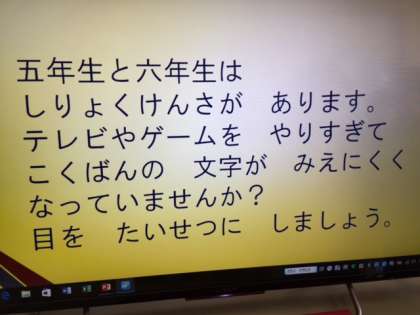 五年生と六年生は
しりょくけんさが あります。
テレビやゲームを やりすぎて
こくばんの 文字が みえにくく
なっていませんか？
目を たいせつに しましょう。